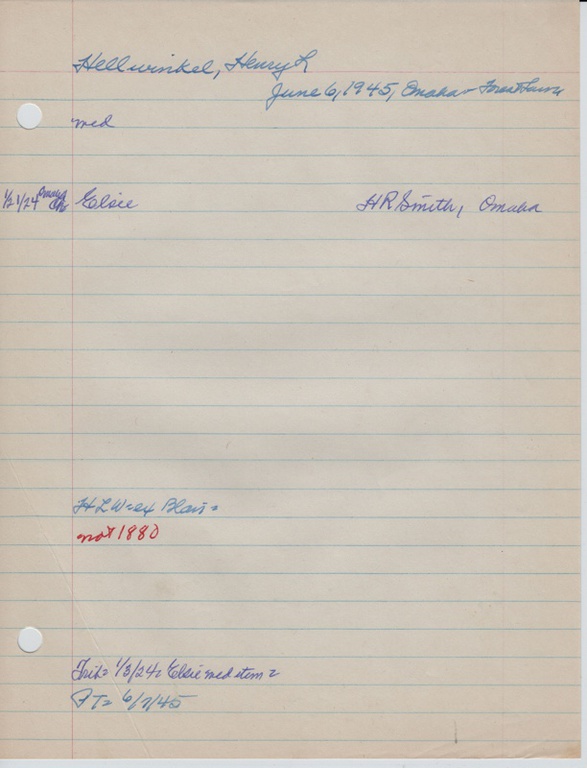 Hellwinkel, Henry L
June 6, 1945, Omaha = Forest Lawn
med
Elsie H R Smith, Omaha
H L W = ex Blair =
not 1880
Trib = 1/3/24: Elsie med item =
6/7/45